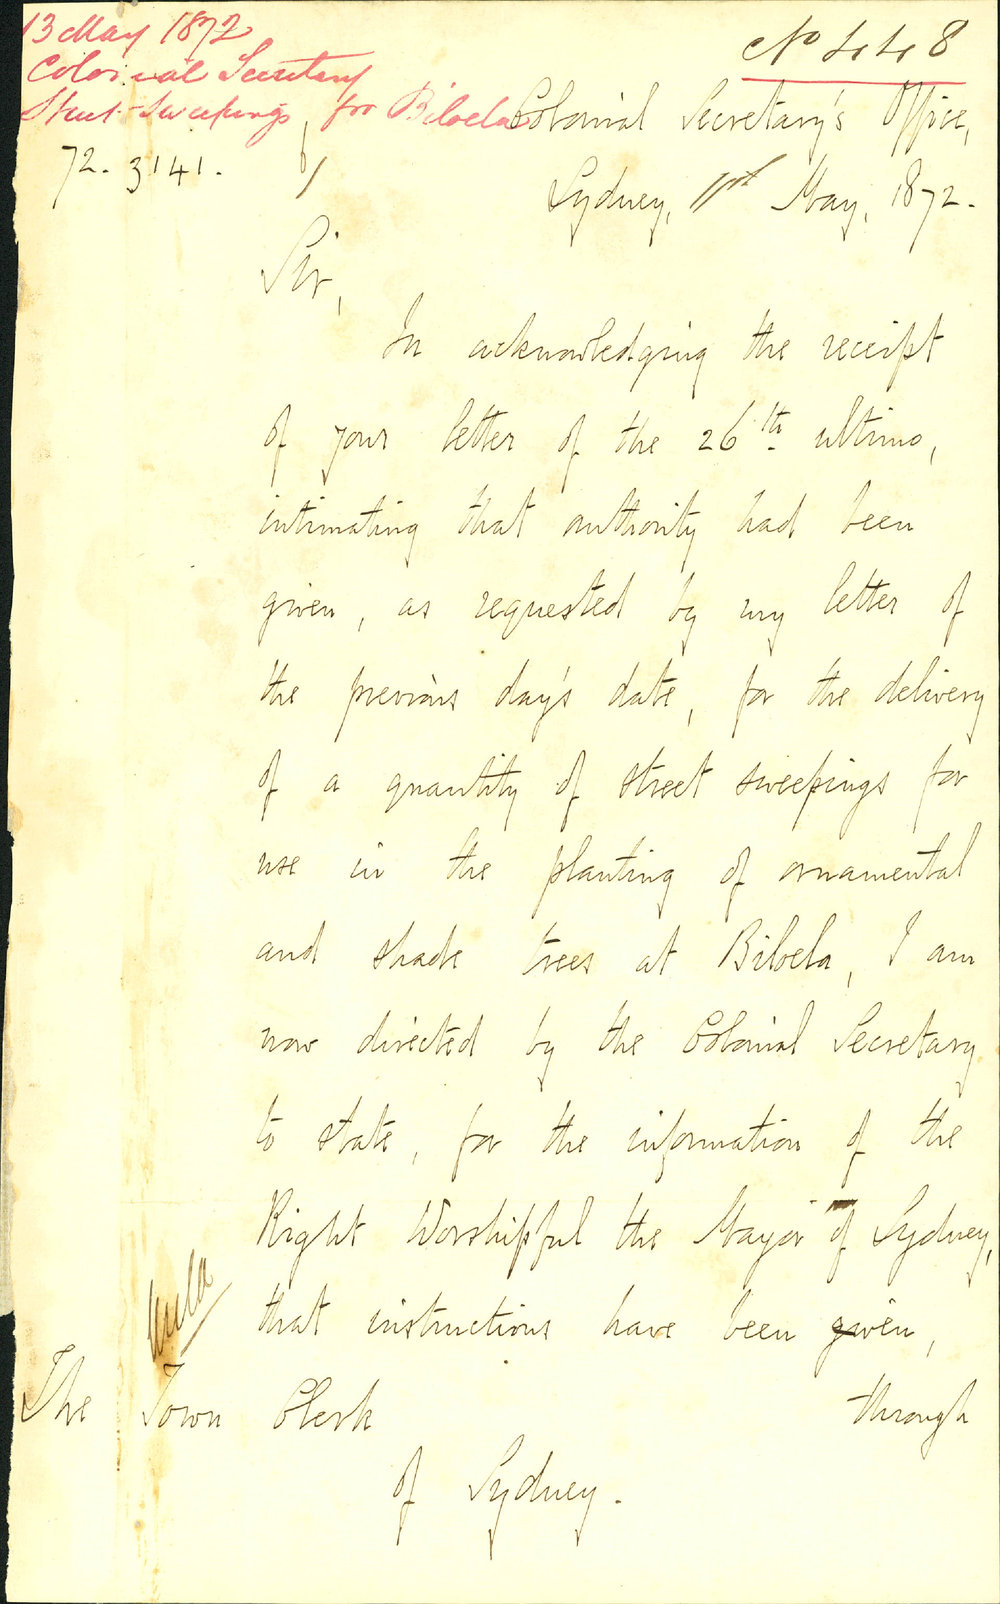 13 May 1872
Colonial Secretary
Street Sweepings for Biloela
No 448
72. 3141.
Colonial Secretary's Office,
Sydney, 11th May, 1872.
Sir,
In acknowledging the receipt
of your letter of the 26th ultimo,
intimating that authority had been
given, as requested by my letter of
the previous day's date, for the delivery
of a quantity of street sweepings for
use in the planting of ornamental
and shade trees at Biloela, I am
now directed by the Colonial Secretary
to state, for the information of the
Right Worshipful the Mayor of Sydney,
that instructions have been given,
through
The Town Clerk
of Sydney.